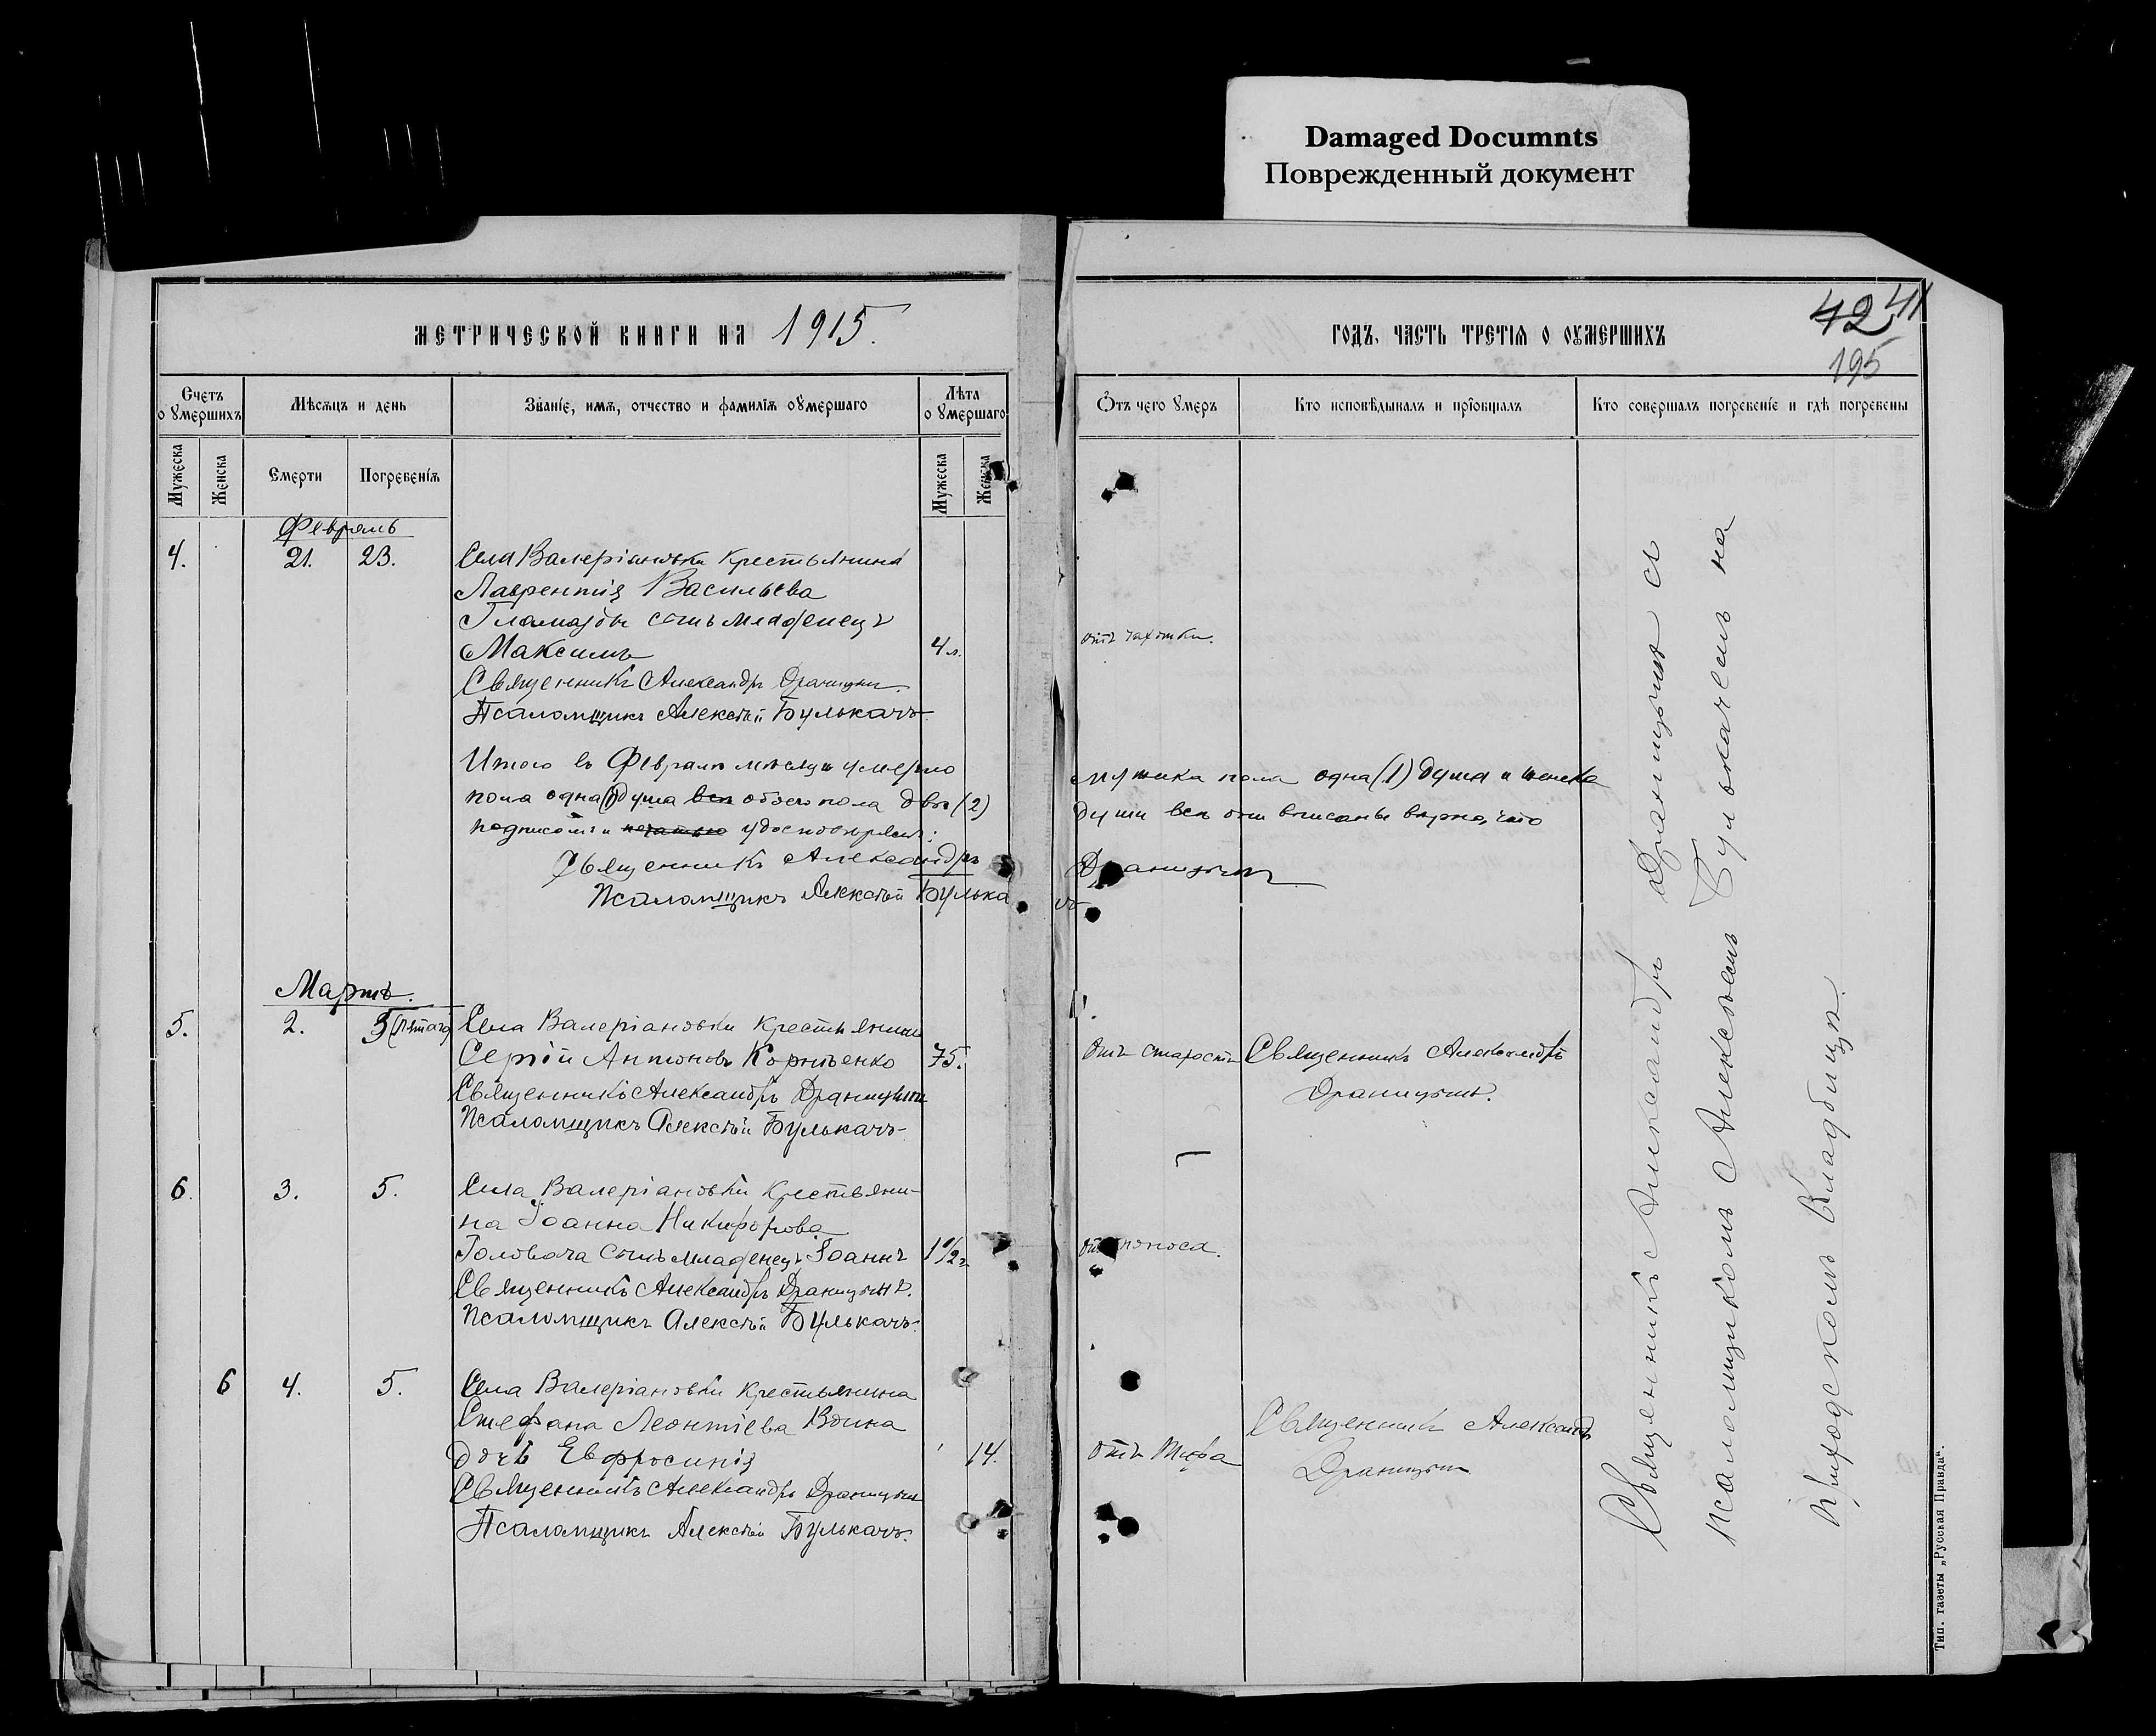 Damaged Documnts
Поврежденный документ
МЕТРИЧЕСКОЙ КНИГИ НА 1915.
ГОДЪ, ЧАСТЬ ТРЕТІЯ О ОУМЕРШИХЪ
42 41
195
Счетъ о умершихъ
Мѣсяцъ и день
Званіе, имя, отчество и фамилія оумершаго
Лѣта о умершаго
Отъ чего умеръ
Кто исповѣдывалъ и пріобщалъ
Кто совершалъ погребеніе и гдѣ погребены
Мужеска
Женска
Смерти
Погребенія
Мужеска
Женска
Февраль
4. 21. 23. Села Валеріановки крестьянина
Лаврентія Васильева
сынъ младенецъ
Максимъ 4 л. отъ чахотки.
Священникъ Александръ Драницынъ
Псаломщикъ Алексѣй Булькачъ
Итого въ Февралѣ мѣсяцѣ умерло мужска пола одна (1) душа и женска
пола одна (1) душа все обоего пола двѣ (2) души всѣ они вписаны вѣрно, что
подписомъ и печатью удостовѣряемъ:
Священникъ Александръ Драницынъ
Псаломщикъ Алексѣй Булькачъ
Мартъ.
5. 2. 5 (пятаго) Села Валеріановки крестьянинъ
Сергій Антоновъ Корніенко 75. отъ старости Священникъ Александръ
Священникъ Александръ Драницынъ Драницынъ.
Псаломщикъ Алексѣй Булькачъ
6. 3. 5. Села Валеріановки крестьяни-
на Іоанна Никифорова
Головача сынъ младенецъ Іоаннъ 1 1/2 г отъ поноса.
Священникъ Александръ Драницынъ.
Псаломщикъ Алексѣй Булькачъ.
6 4. 5. Села Валеріановки крестьянина
Стефана Леонтіева Воина Священникъ Александръ
дочь Евфросинія 14. отъ тифа Драницынъ
Священникъ Александръ Драницынъ
Псаломщикъ Алексѣй Булькачъ.
Священникъ Александръ Драницынъ съ
псаломщикомъ Алексѣемъ Булькачемъ на
приходскомъ кладбищѣ.
Тип. газеты „Русская Правда“.